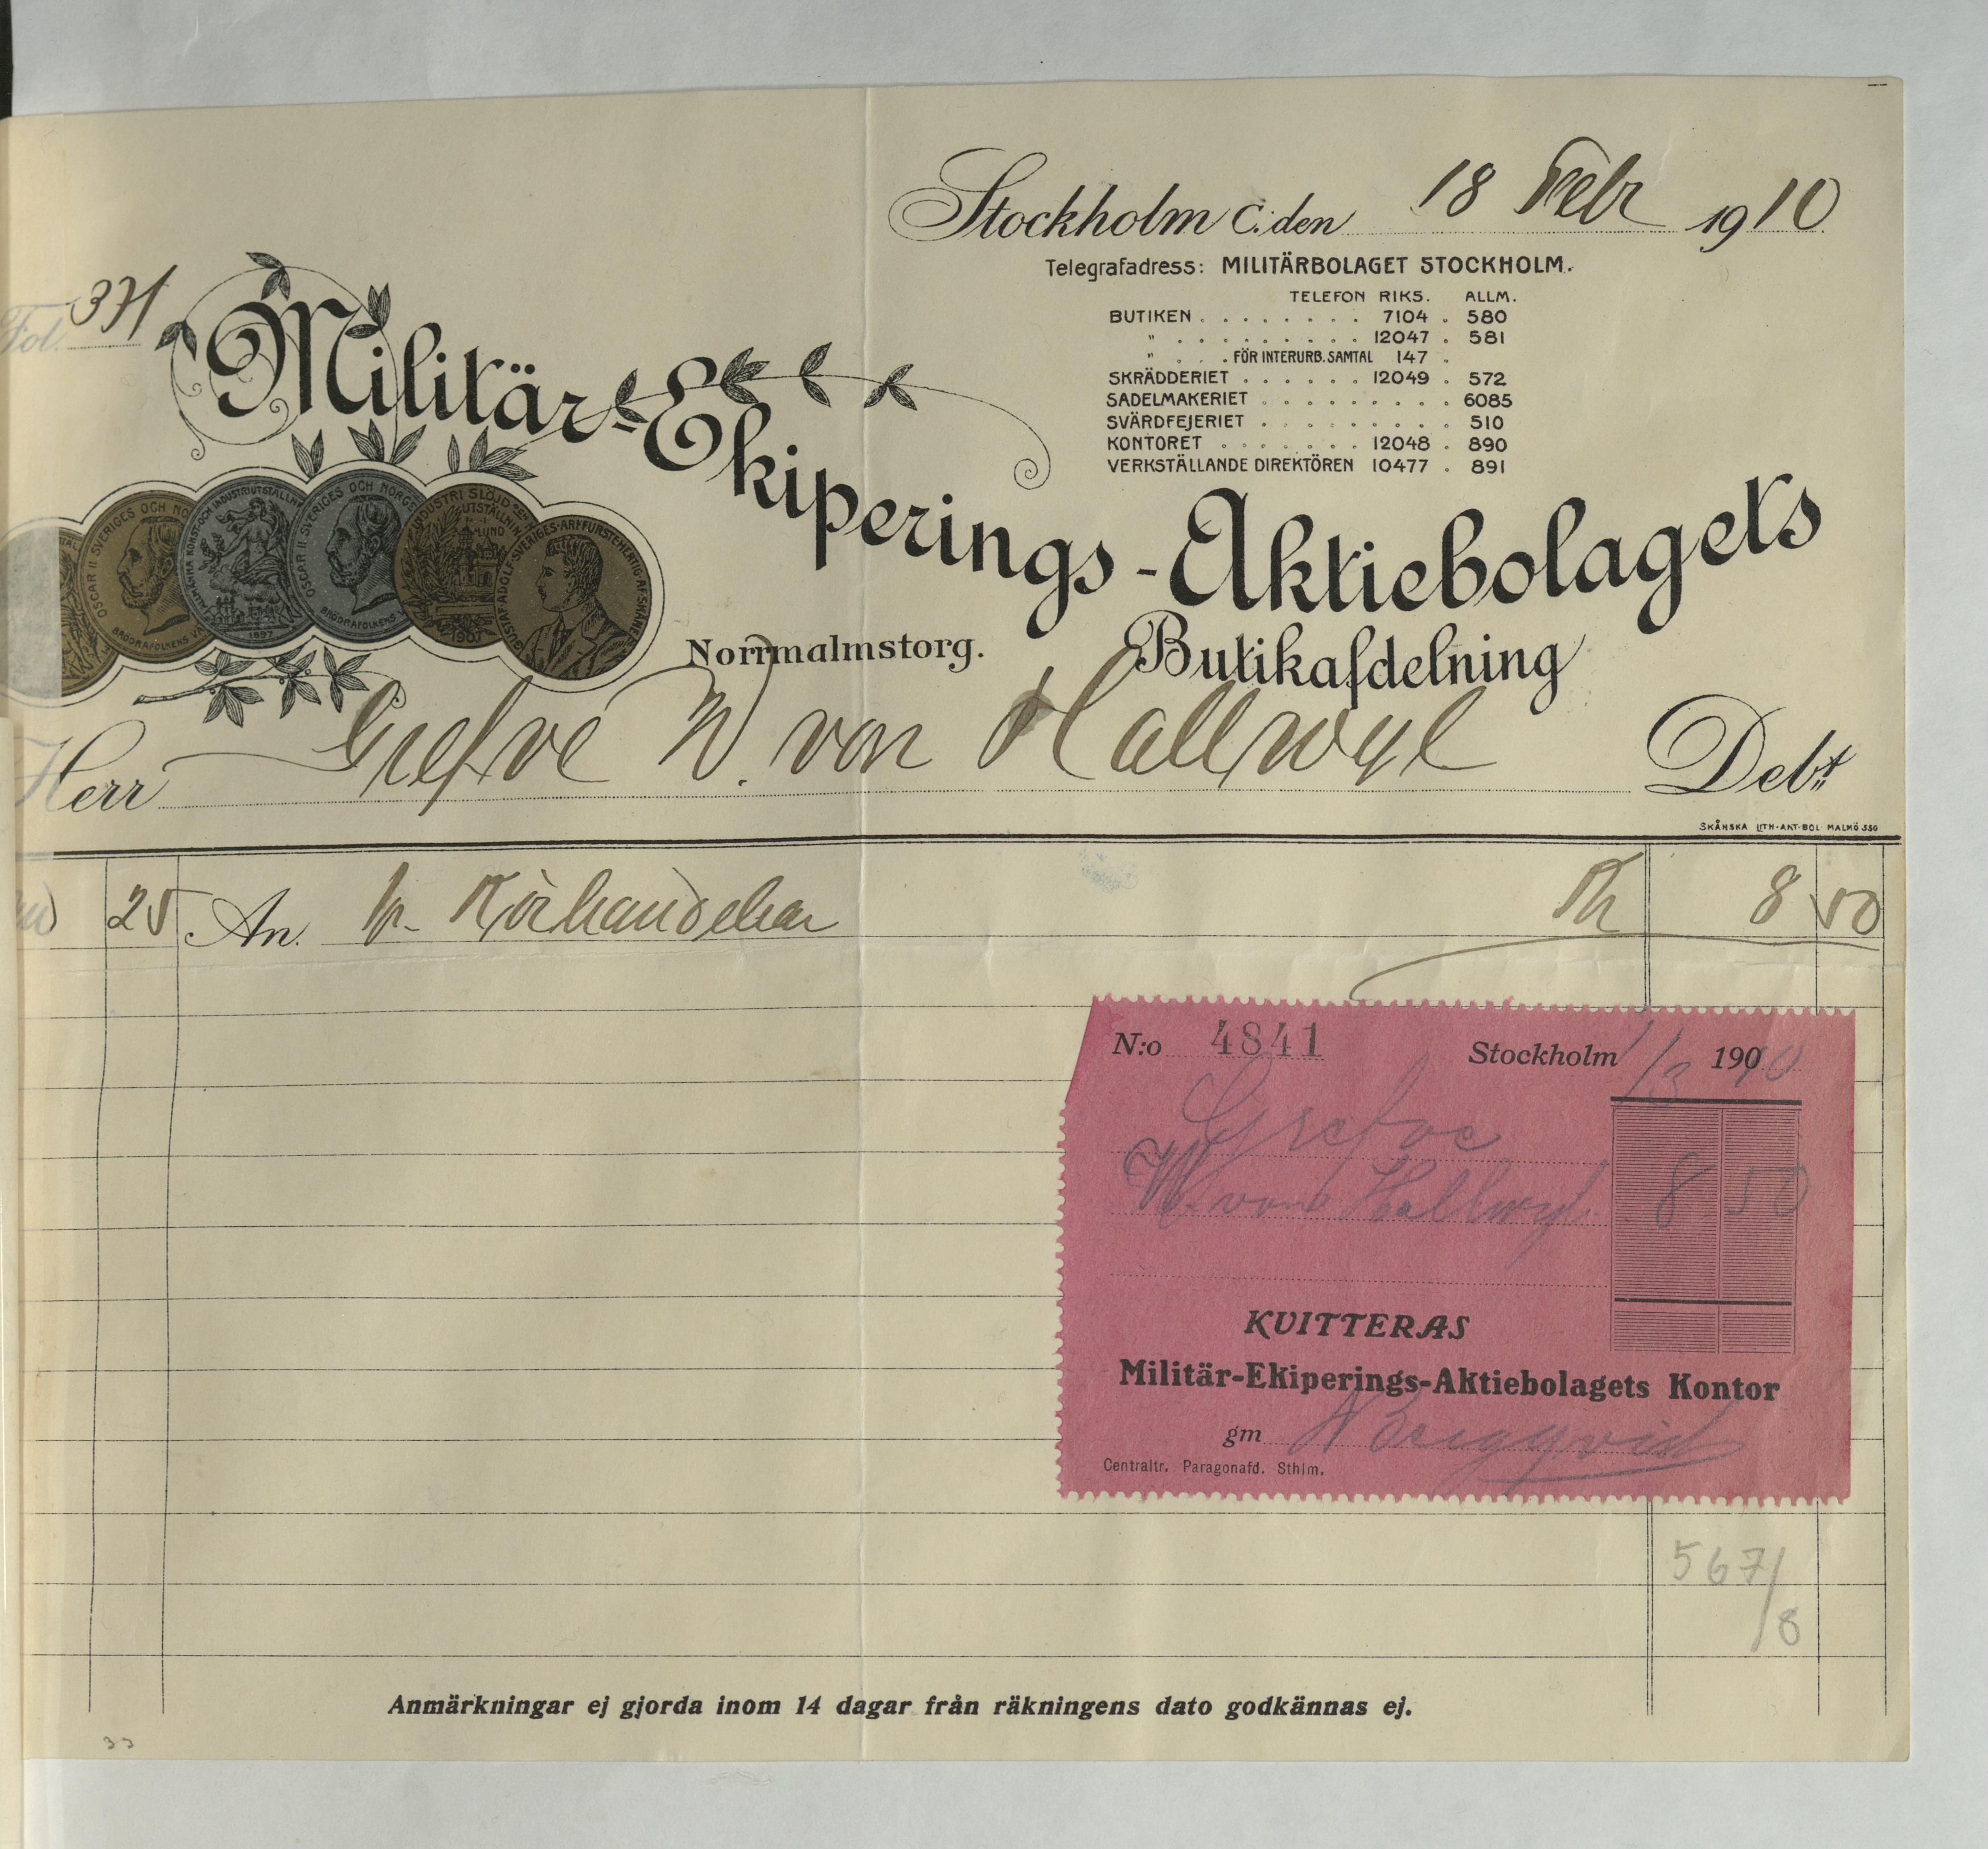 Stockholm C. den 18 Febr 1910
Telegrafadress: MILITÄRBOLAGET STOCKHOLM.
TELEFON RIKS. ALLM.
BUTIKEN . . . . . . . . 7104 . 580
" . . . . . . . . . 12047 . 581
" . . . FÖR INTERURB. SAMTAL 147 .
SKRÄDDERIET . . . . . . 12049 . 572
SADELMAKERIET . . . . . . . . . 6085
SVÄRDFEJERIET . . . . . . . . . 510
KONTORET . . . . . . . 12048 . 890
VERKSTÄLLANDE DIREKTÖREN 10477 . 891
Fol. 371
Militär-Ekiperings-Aktiebolagets
Norrmalmstorg. Butikafdelning
OSCAR II SVERIGES OCH NO
BRÖDRAFOLKENS VÄ
ALLMÄNNA KONST- OCH INDUSTRIUTSTÄLLN
1897
OSCAR II SVERIGES OCH NORGES
BRÖDRAFOLKENS
INDUSTRI SLÖJD
UTSTÄLLNIN
LUND
1907
GUSTAF·ADOLF·SVERIGES·ARFFURSTE·HERTIG·AF·SKÅNE
Herr Grefve W. von Hallwyl Debt
SKÅNSKA LITH-AKT-BOL MALMÖ 350
25 An. pr Körhandskar Kr 8 50
N:o 4841 Stockholm 1/3 1910
Grefve
W. von Hallwyl. 8.50
KVITTERAS
Militär-Ekiperings-Aktiebolagets Kontor
gm N Bergqvist
Centraltr. Paragonafd. Sthlm.
567/8
Anmärkningar ej gjorda inom 14 dagar från räkningens dato godkännas ej.
33